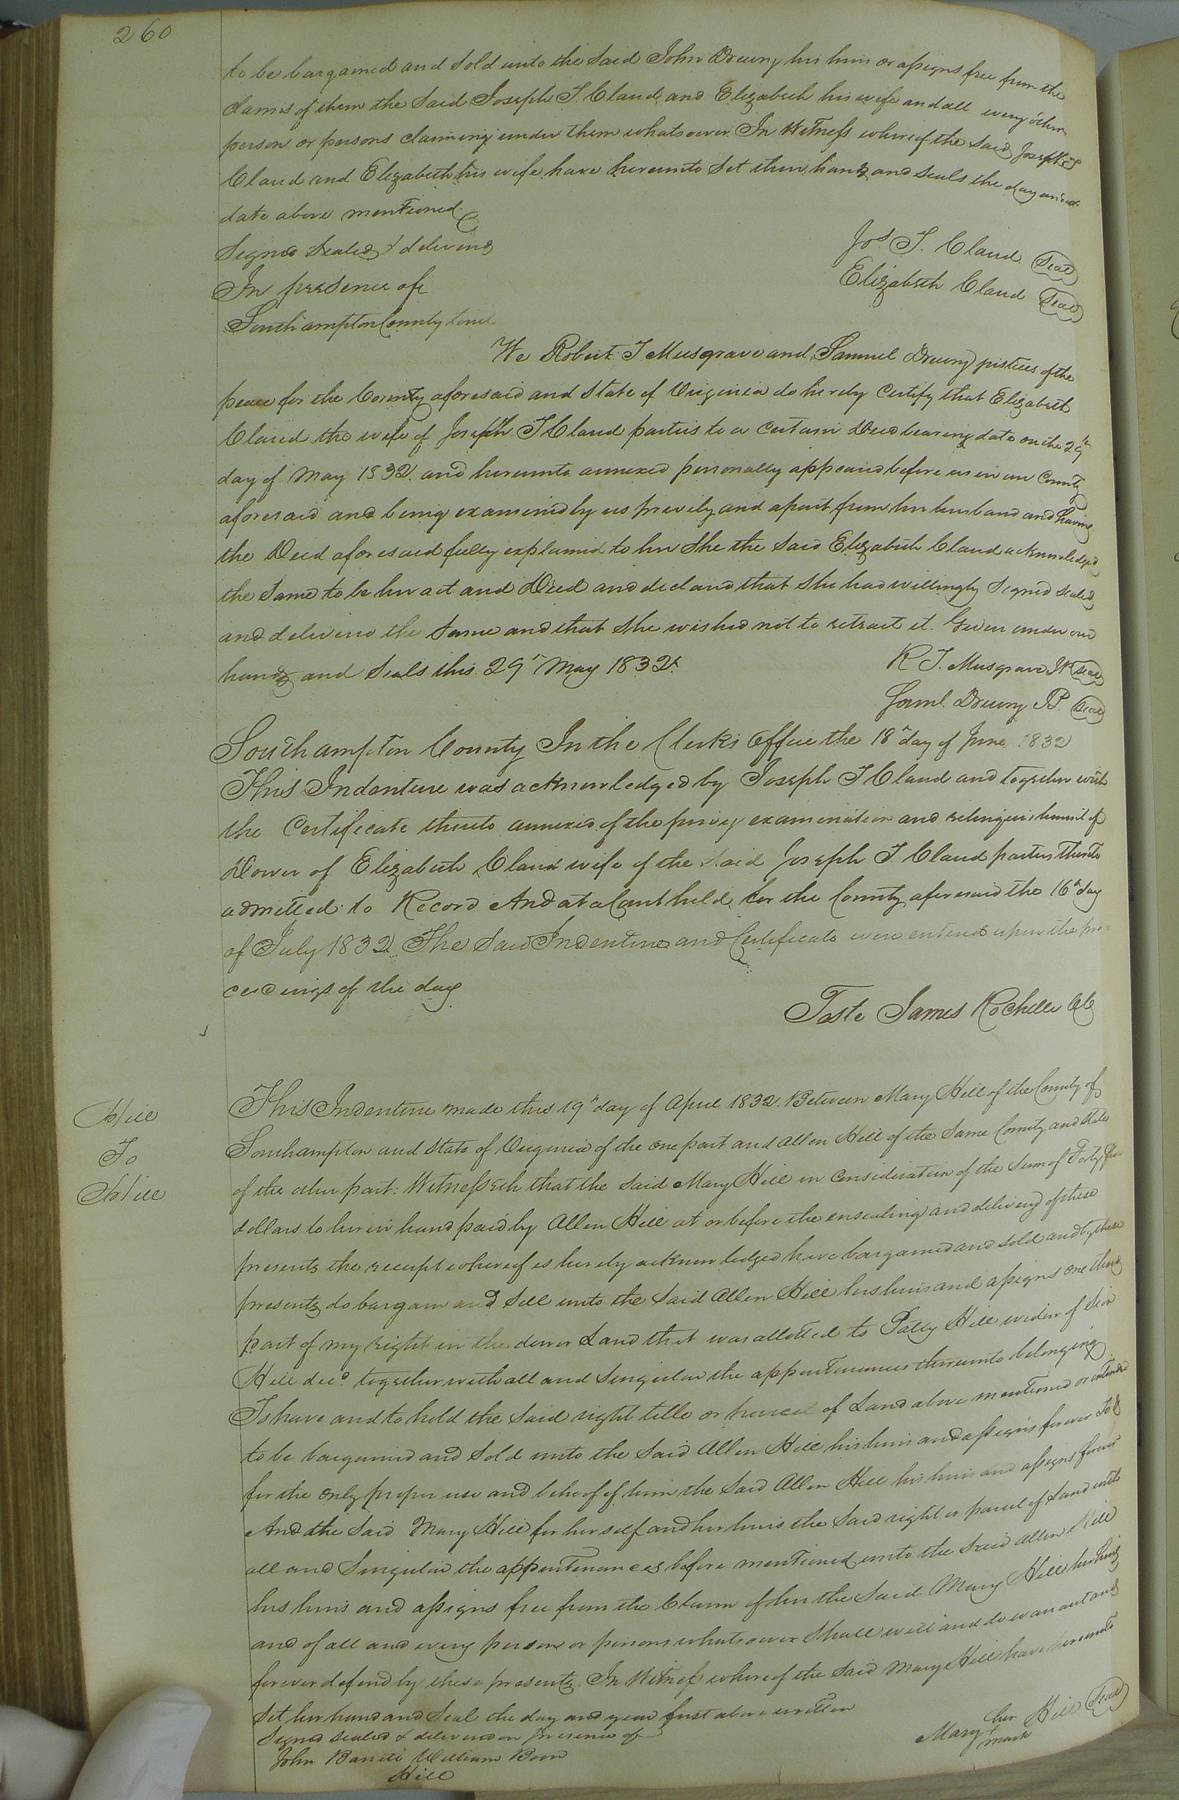 260
to be bargained and sold unto the said John Drewry his heirs or assigns free from the
claims of them the said Joseph T. Claud and Elizabeth his wife and all every other
person or persons claiming under them whatsoever In Witness whereof the said Joseph T
Claud and Elizabeth his wife have hereunto set their hands and seals the day and
date above mentioned
Signed Sealed & delivered
Jos. T. Claud (Seal)
In presence of
Elizabeth Claud (Seal)
Southampton County to wit
We Robert T Musgrave and Samuel Drewry justices of the
peace for the County aforesaid and State of Virginia do hereby Certify that Elizabeth
Claud the wife of Joseph T Claud parties to a certain Deed bearing date on the 29th
day of May 1832 and hereunto annexed personally appeared before us in our County
aforesaid and being examined by us privily and apart from her husband and having
the Deed aforesaid fully explained to her She the said Elizabeth Claud acknowledged
the same to be her act and Deed and declared that she had willingly Signed sealed
and delivered the same and that she wished not to retract it. Given under our
hands and Seals this 29th May 1832.
R T. Musgrave JP (Seal)
Saml. Drewry JP. (Seal)
Southampton County In the Clerks Office the 18th day of June 1832
This Indenture was acknowledged by Joseph T Claud and together with
the Certificate thereto annexed of the privy examination and relinquishment of
Dower of Elizabeth Claud wife of the said Joseph T. Claud parties thereto
admitted to Record And at a Court held for the County aforesaid the 16th day
of July 1832 The Said Indenture and Certificate were entered upon the pro
ceedings of the day
Teste James Rochelle CC
Hill
To
Hill
This Indenture made this 19th day of April 1832. Between Mary Hill of the County of
Southampton and State of Virginia of the one part and Allen Hill of the same County and State
of the other part: Witnesseth that the said Mary Hill in consideration of the sum of Forty
dollars to her in hand paid by Allen Hill at or before the ensealing and delivery of these
presents the receipt whereof is hereby acknowledged have bargained and sold and by these
presents do bargain and sell unto the said Allen Hill his heirs and assigns one third
part of my right in the dower Land that was allotted to Patty Hill widow of
Hill decd. together with all and Singular the appurtenances thereunto belonging
To have and to hold the said right title or parcel of Land above mentioned or intended
to be bargained and sold unto the said Allen Hill his heirs and assigns forever to &
for the only proper use and behoof of him the said Allen Hill his heirs and assigns forever
And the said Mary Hill for herself and her heirs the said right or parcel of Land with
all and Singular the appurtenances before mentioned unto the said Allen Hill
his heirs and assigns free from the Claim of her the said Mary Hill her heirs
and of all and every person or persons whatsoever shall will and do warrant and
forever defend by these presents. In Witness whereof the said Mary Hill have hereunto
Set her hand and Seal the day and year first above written
Signed sealed & delivered in presence of
Mary her mark Hill (Seal)
John Barrett William
Hill